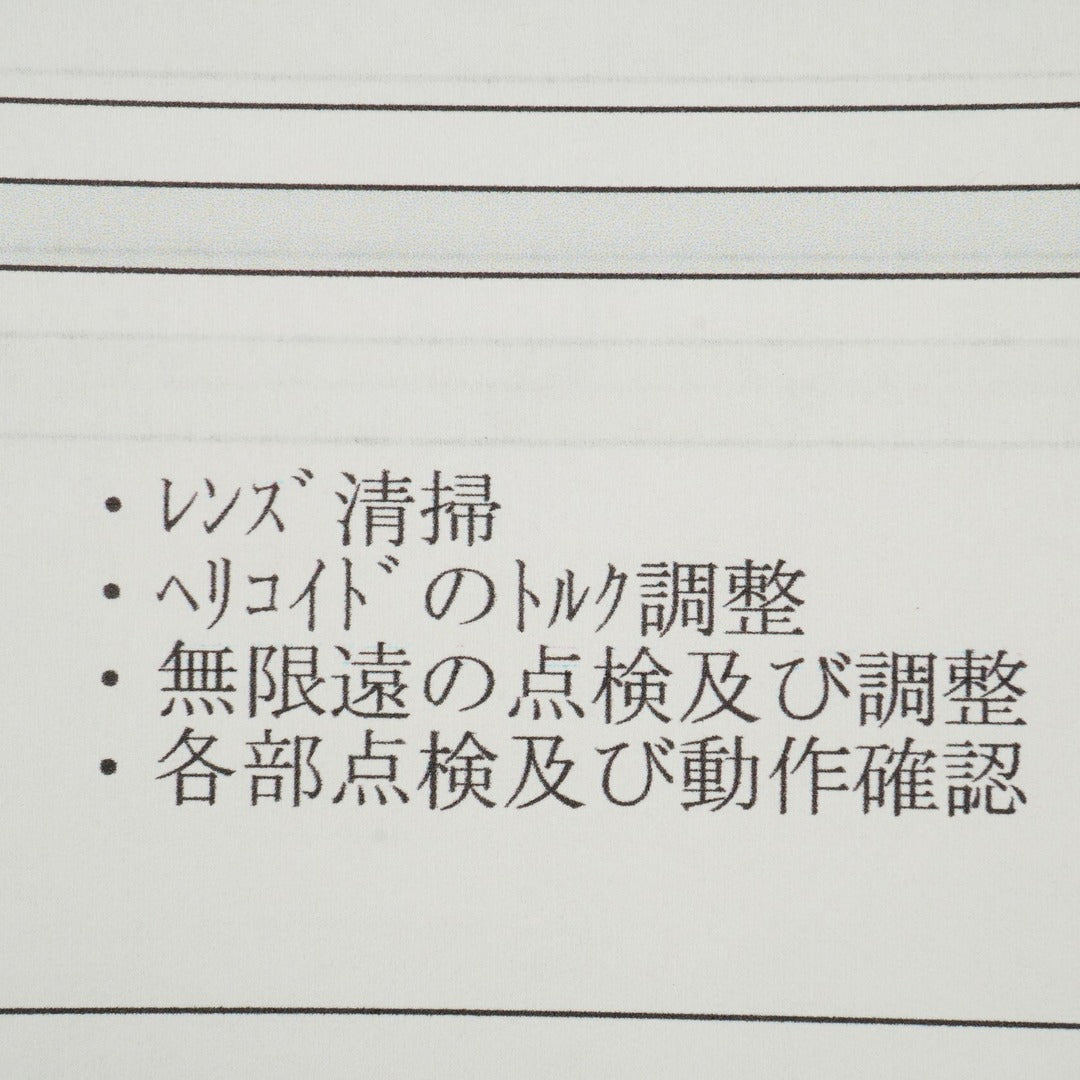 ・ﾚﾝｽﾞ清掃
・ﾍﾘｺｲﾄﾞのﾄﾙｸ調整
・無限遠の点検及び調整
・各部点検及び動作確認